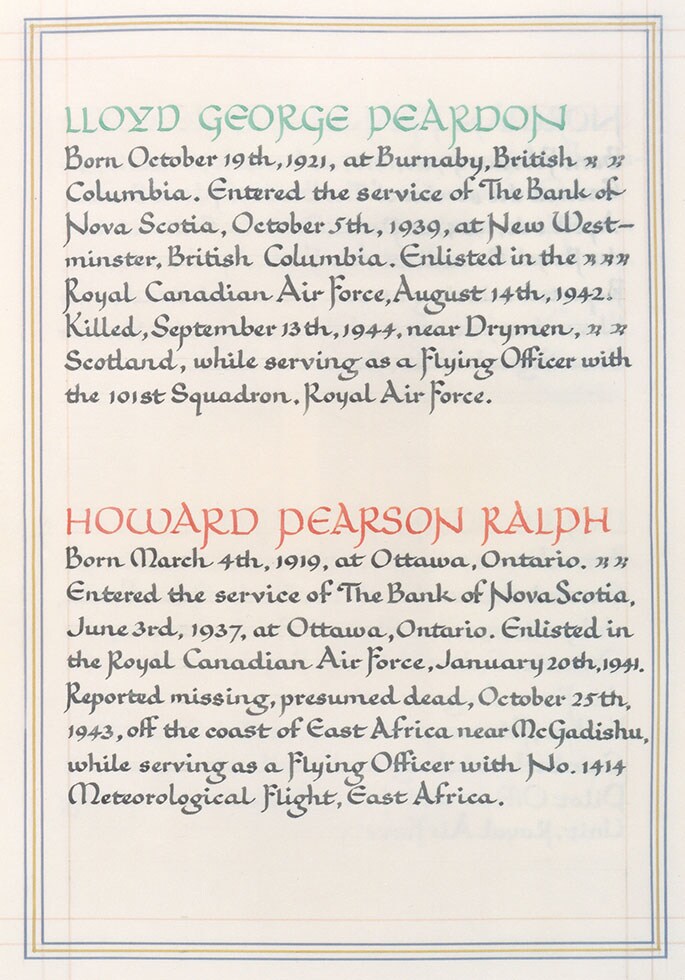 LLOYD GEORGE PEARDON
Born October 19th, 1921, at Burnaby, British
Columbia. Entered the service of The Bank of
Nova Scotia, October 5th, 1939, at New West-
minster, British Columbia. Enlisted in the
Royal Canadian Air Force, August 14th, 1942.
Killed, September 13th, 1944, near Drymen,
Scotland, while serving as a Flying Officer with
the 101st Squadron, Royal Air Force.
HOWARD PEARSON RALPH
Born March 4th, 1919, at Ottawa, Ontario.
Entered the service of The Bank of Nova Scotia,
June 3rd, 1937, at Ottawa, Ontario. Enlisted in
the Royal Canadian Air Force, January 20th, 1941.
Reported missing, presumed dead, October 25th,
1943, off the coast of East Africa near McGadishu,
while serving as a Flying Officer with No. 1414
Meteorological Flight, East Africa.